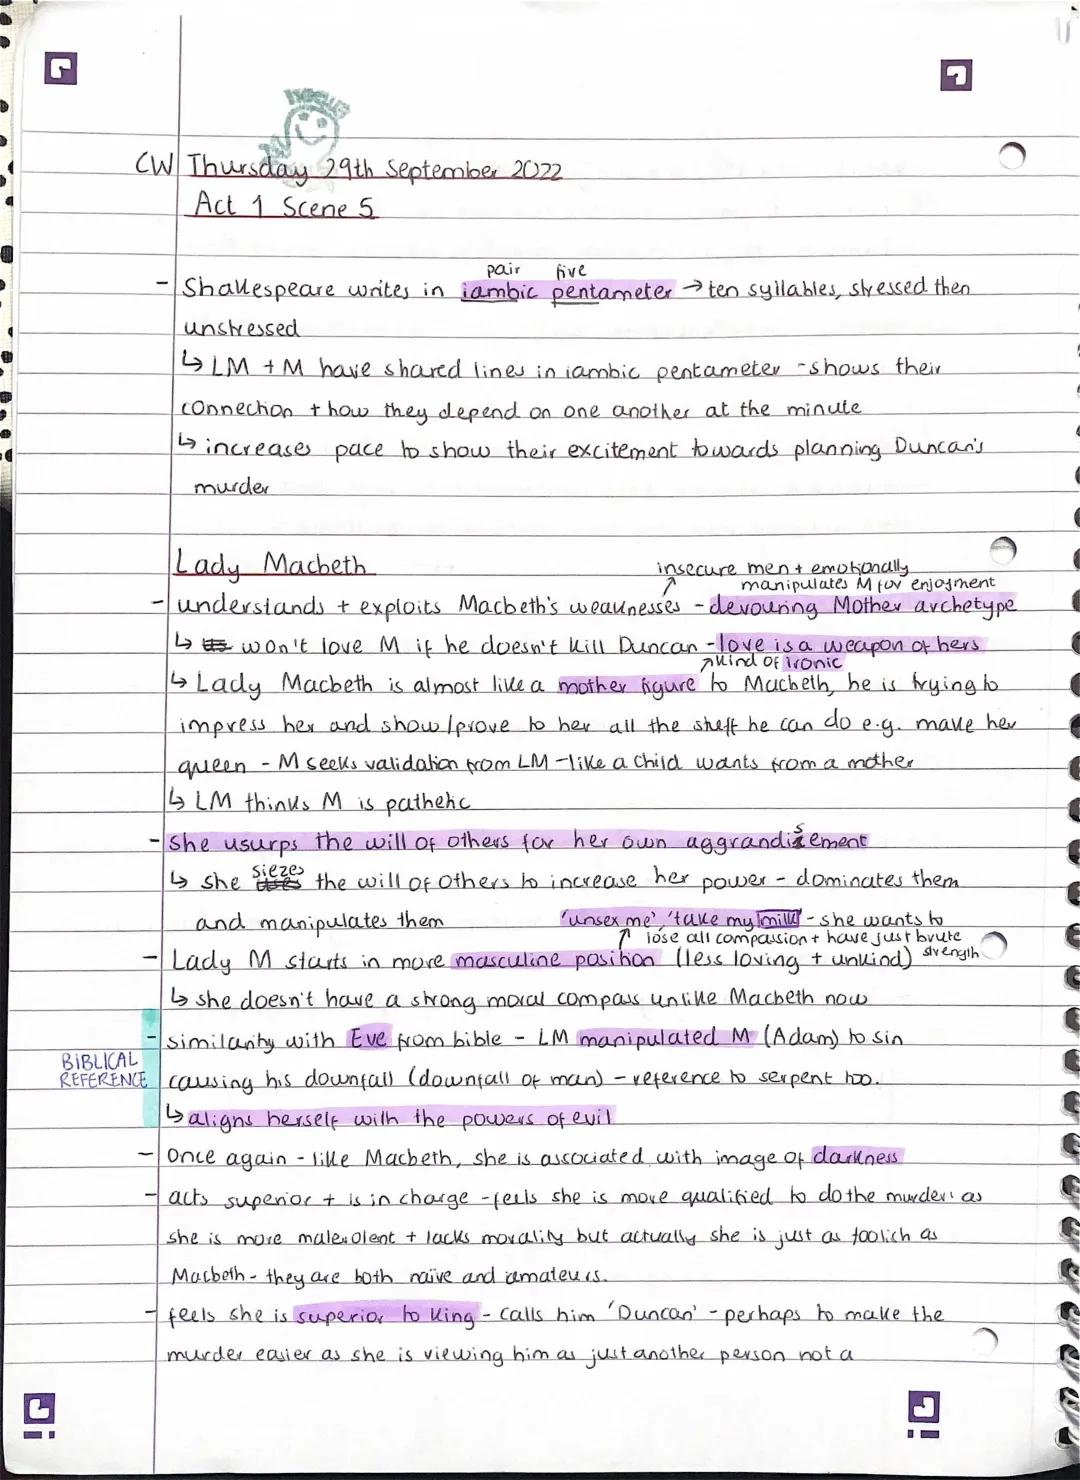 CW Thursday 29th September 2022
Act 1 Scene 5
pair five
- Shakespeare writes in iambic pentameter → ten syllables, stressed then
unstressed
↳ LM + M have shared lines in iambic pentameter - shows their
connection + how they depend on one another at the minute
↳ increases pace to show their excitement towards planning Duncan's
murder
Lady Macbeth
insecure men + emotionally
manipulates M for enjoyment
- understands + exploits Macbeth's weaknesses - devouring Mother archetype
↳ won't love M if he doesn't kill Duncan - love is a weapon of hers
kind of ironic
↳ Lady Macbeth is almost like a mother figure to Macbeth, he is trying to
impress her and show/prove to her all the stuff he can do e.g. make her
queen - M seeks validation from LM - like a child wants from a mother
↳ LM thinks M is pathetic
- she usurps the will of others for her own aggrandisement
↳ she siezes the will of others to increase her power - dominates them
and manipulates them
'unsex me', 'take my milk' - she wants to
lose all compassion + have just brute
strength
- Lady M starts in more masculine position (less loving + unkind)
↳ she doesn't have a strong moral compass unlike Macbeth now
BIBLICAL
REFERENCE
- similarity with Eve from bible - LM manipulated M (Adam) to sin
causing his downfall (downfall of man) - reference to serpent too.
↳ aligns herself with the powers of evil
- Once again - like Macbeth, she is associated with image of darkness
- acts superior + is in charge - feels she is more qualified to do the murder as
she is more malevolent + lacks morality but actually she is just as foolich as
Macbeth - they are both naive and amateurs.
- feels she is superior to King - calls him 'Duncan' - perhaps to make the
murder easier as she is viewing him as just another person not a